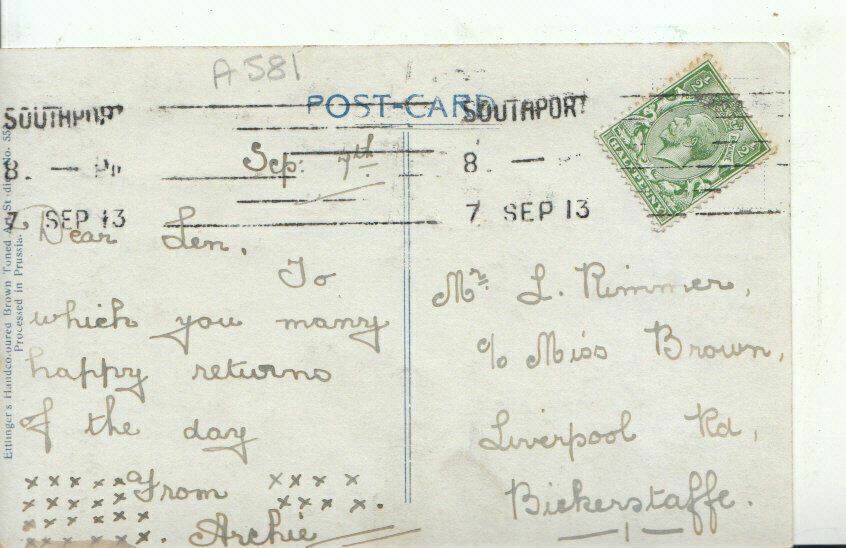 A 581
POST-CARD
SOUTHPORT
8. —
7 SEP 13
SOUTHPORT
8. —
7 SEP 13
HALFPENNY
Sep: 7th
Dear Len,
To
which you many
happy returns
of the day
x x x x x x From x x x x
x x x x x x x x x x .
x x x x x x x
x x x x x x x . Archie
Mr. L. Rimmer,
c/o Miss Brown,
Liverpool Rd,
Bickerstaffe.
Ettlinger's Handcoloured Brown Toned Art Studio No. 55
Processed in Prussia.